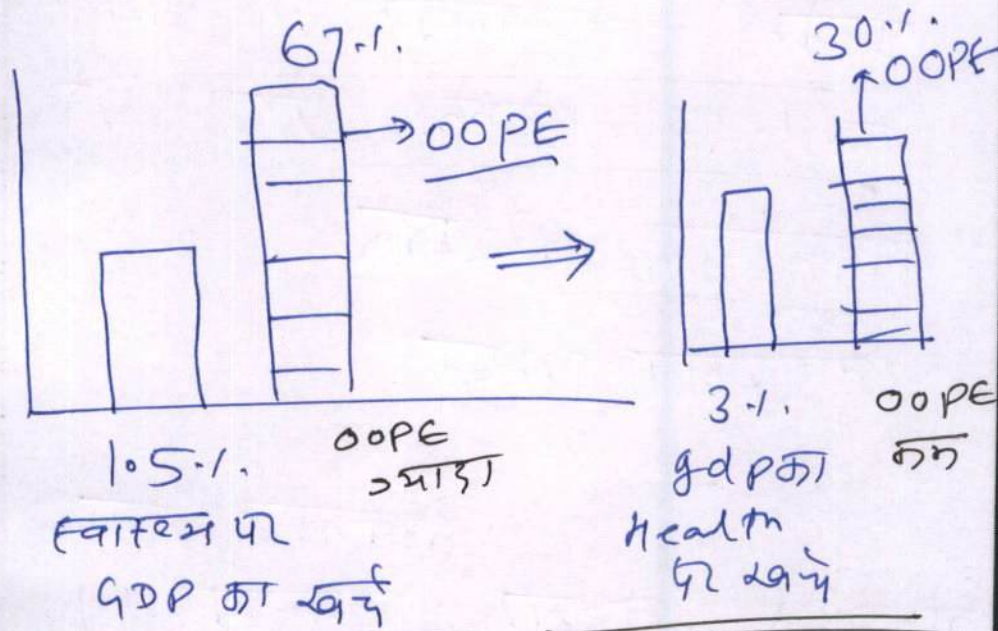 67%
→ OOPE
1.5%
स्वास्थ्य पर
GDP का खर्च
OOPE
ज्यादा
⇒
30%
OOPE
3%
gdp का
Health
पर खर्च
OOPE
कम